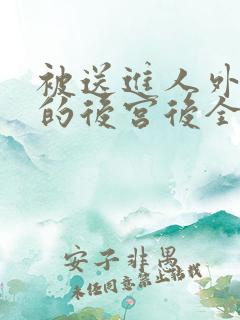 被送進人外
的後宮後全
安子非愚
未任同意禁止轉載